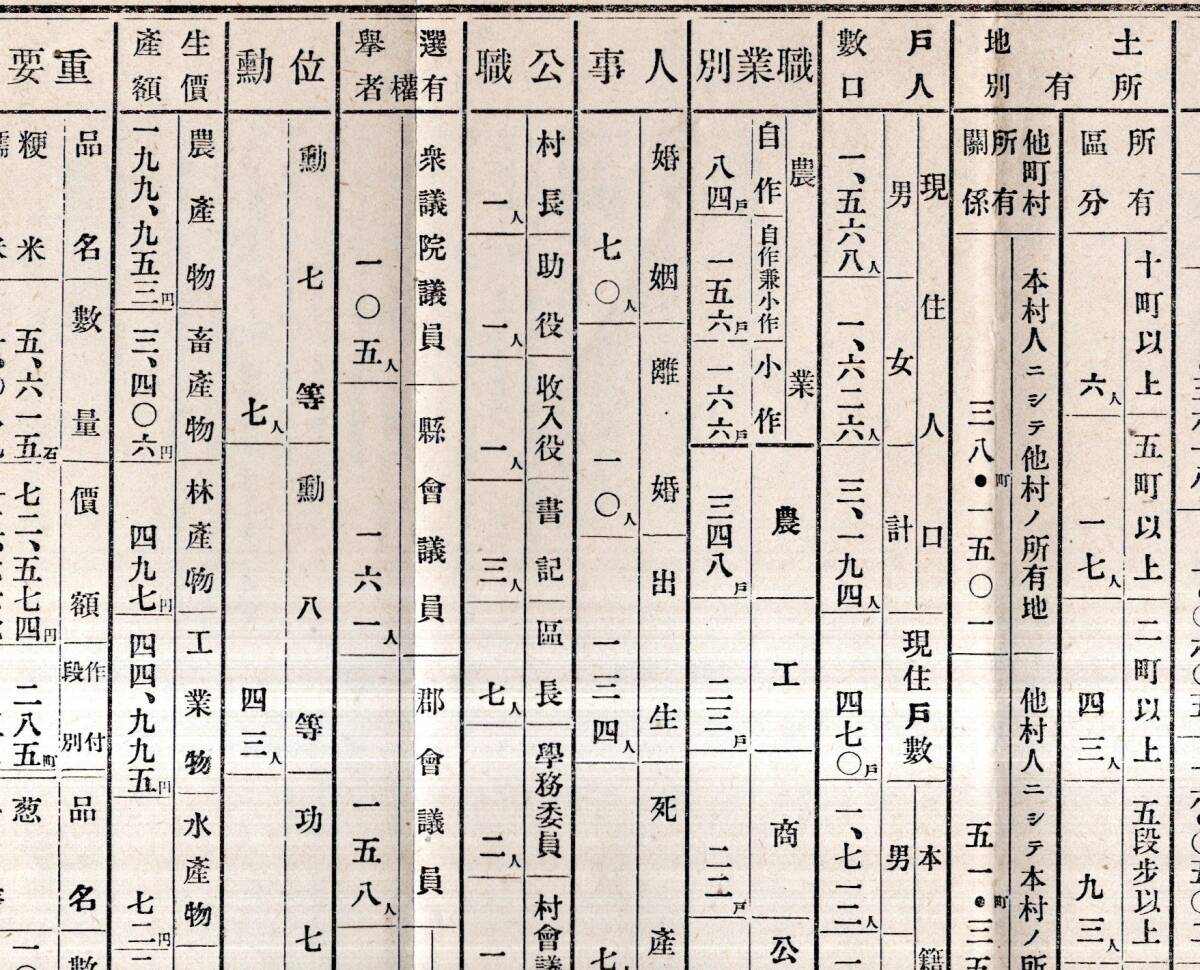 土地
所有別
所有區分
十町以上
六人
五町以上
一七人
二町以上
四三人
五段步以上
九三人
他町村所有關係
本村人ニシテ他村ノ所有地
三八・一五〇一町
他村人ニシテ本村ノ所
五一・三五町
戶數
人口
現住人口
男
一、五六八人
女
一、六二六人
計
三、一九四人
現住戶數
四七〇戶
本籍
男
一、七二二人
職業別
農業
自作
八四戶
自作兼小作
一五六戶
小作
一六六戶
農
三四八戶
工
二三戶
商
二二戶
公
人事
婚姻
七〇人
離婚
一〇人
出生
一三四人
死產
七人
公職
村長
一人
助役
一人
收入役
一人
書記
三人
區長
七人
學務委員
二人
村會議
一
選擧
有權者
衆議院議員
一〇五人
縣會議員
一六一人
郡會議員
一五八人
位勳
勳七等
七人
勳八等
四三人
功七
生產
價額
農產物
一九九、九五三円
畜產物
三、四〇六円
林產物
四九七円
工業物
四四、九九五円
水產物
七二円
重要
品名
數量
價額
作付段別
品名
數
粳米
五、六一五石
七二、五七四円
二八五町
葱